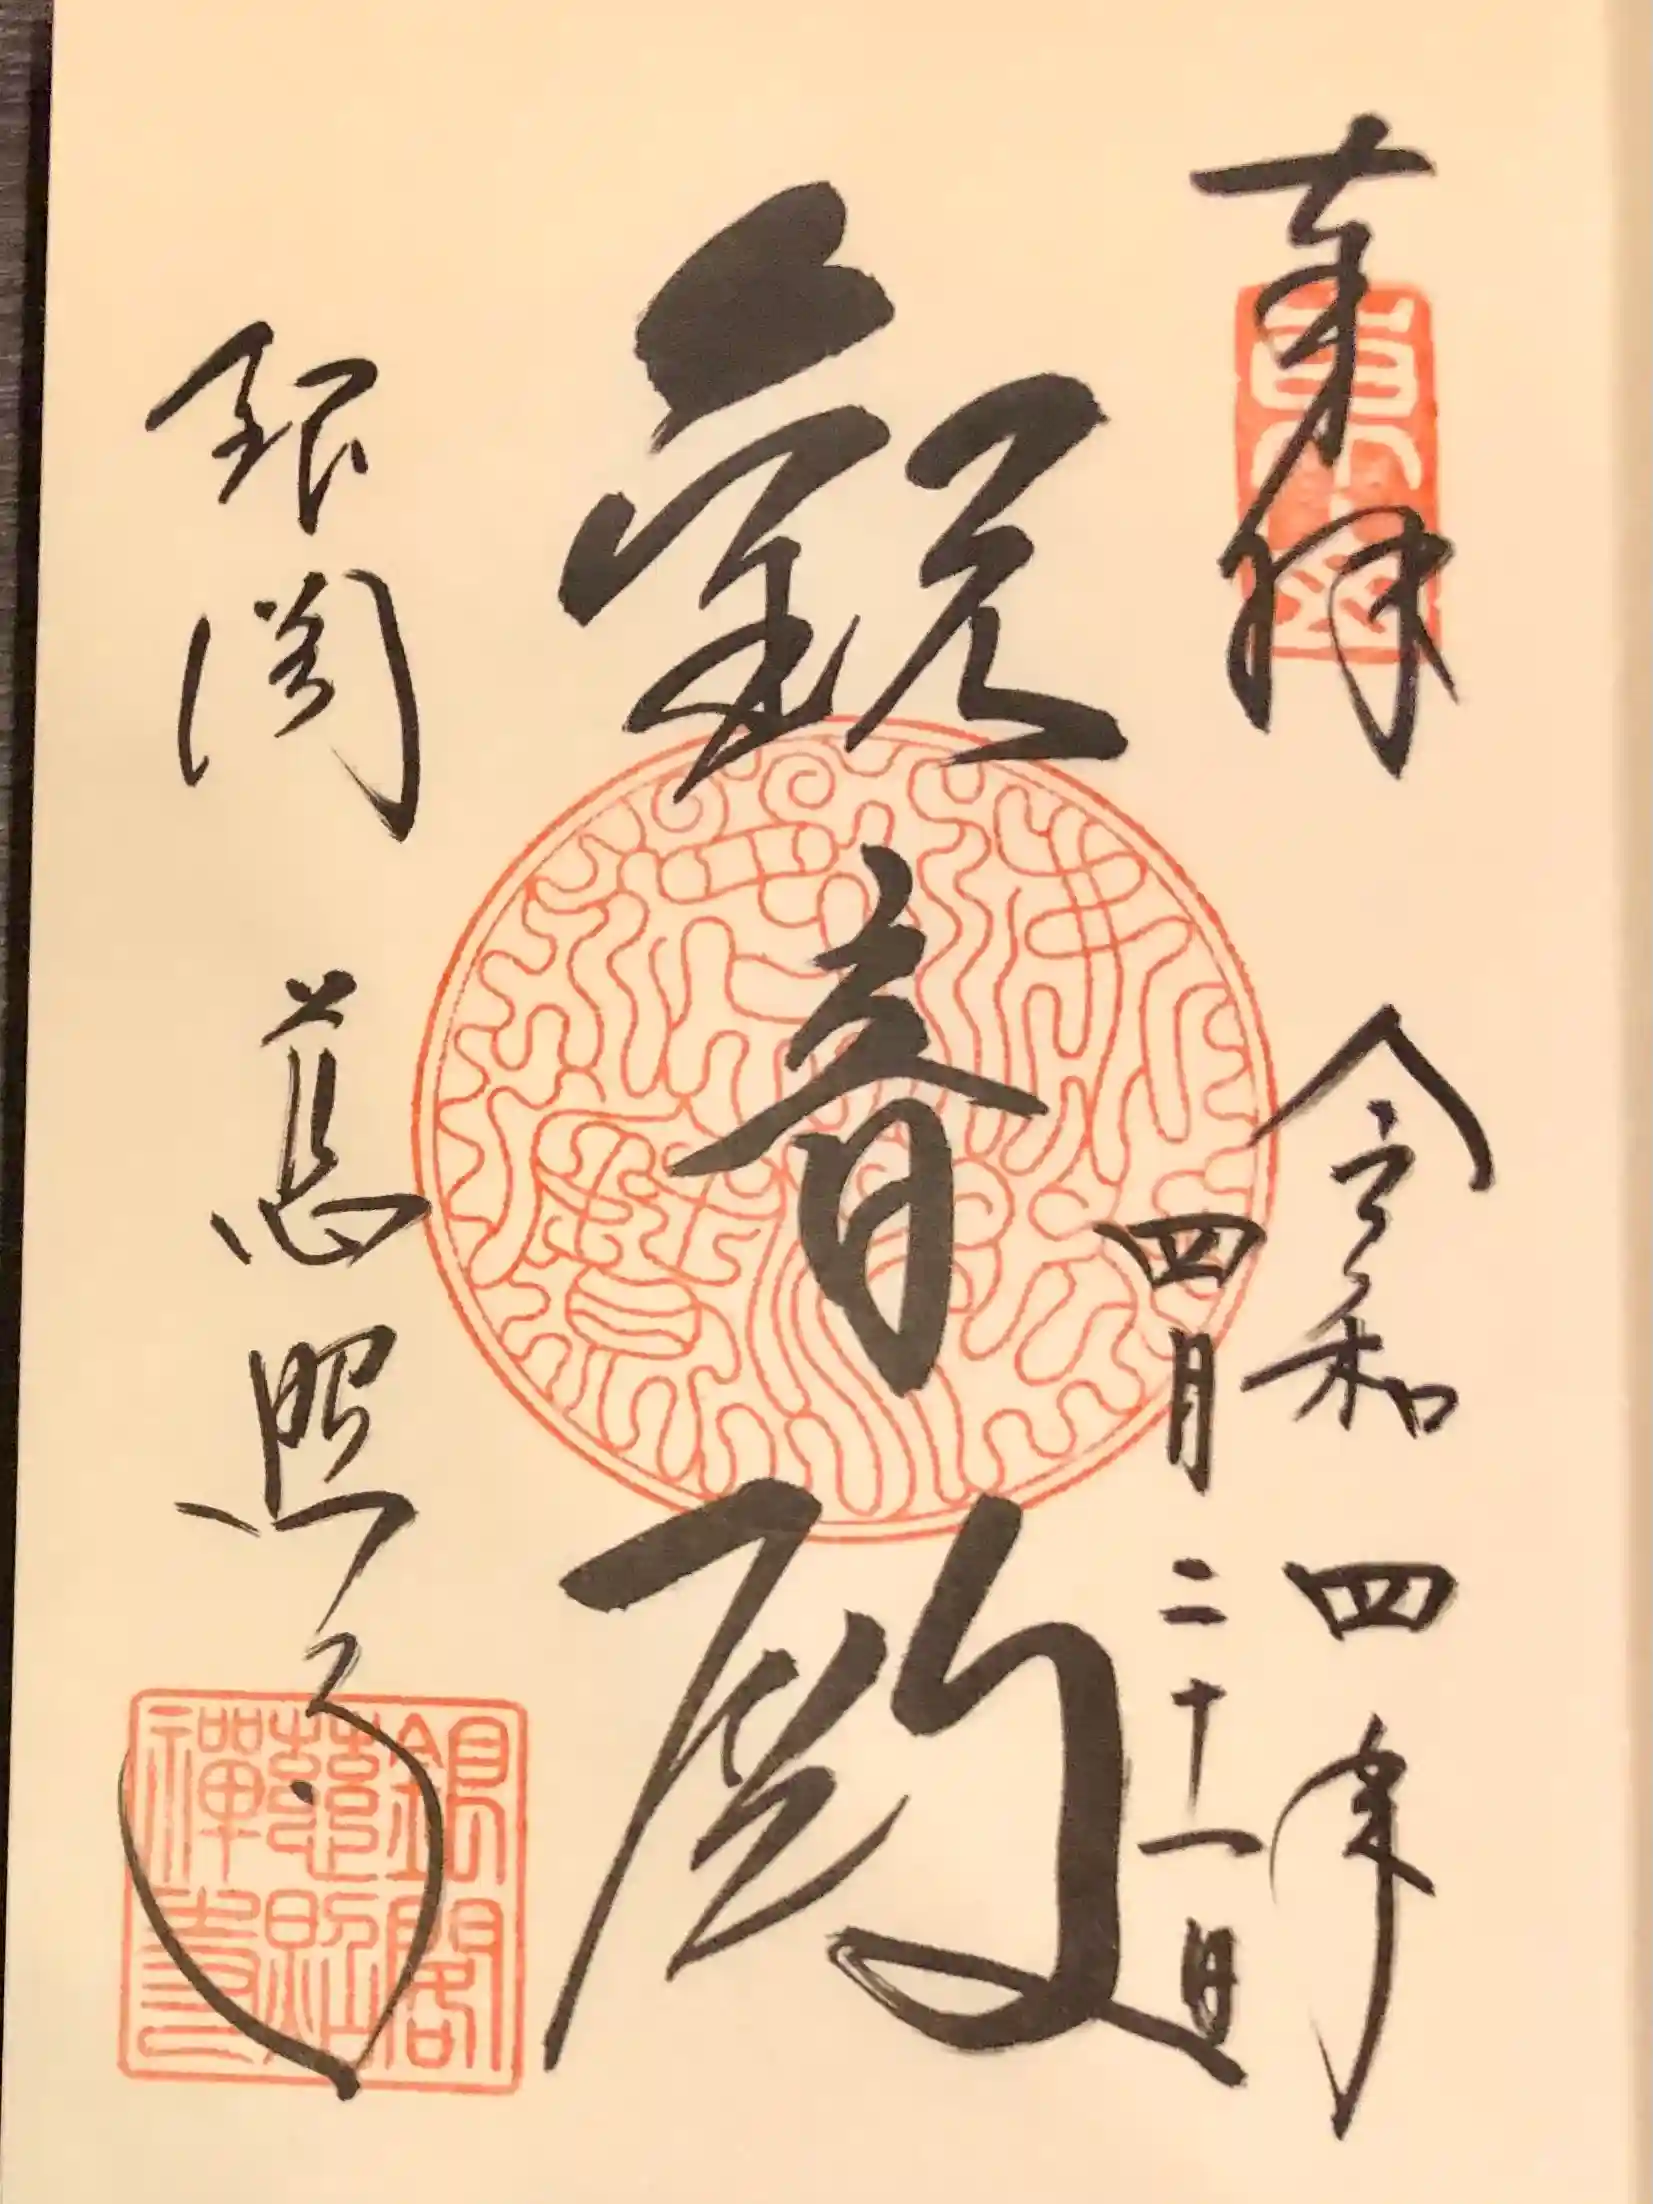 奉拝
令和四年
四月二十一日
觀音殿
銀閣 慈照寺
東山
銀閣
慈照
禅寺